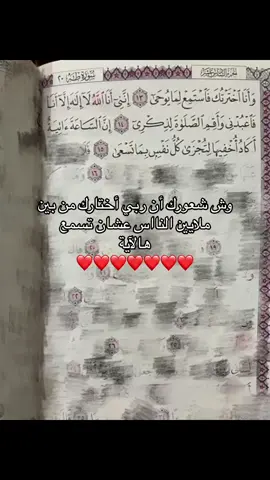 الجزء السادس عشر سورة طه ٢٠
وَأَنَا ٱخْتَرْتُكَ فَٱسْتَمِعْ لِمَا يُوحَىٰٓ ١٣ إِنَّنِىٓ أَنَا ٱللَّهُ لَآ إِلَٰهَ إِلَّآ أَنَا۠
فَٱعْبُدْنِى وَأَقِمِ ٱلصَّلَوٰةَ لِذِكْرِىٓ ١٤ إِنَّ ٱلسَّاعَةَ ءَاتِيَةٌ
أَكَادُ أُخْفِيهَا لِتُجْزَىٰ كُلُّ نَفْسٍۭ بِمَا تَسْعَىٰ ١٥
١٦
وش شعورك أن ربي أختارك من بين
ملايين النااس عشان تسمع
هالآية
❤️❤️❤️❤️❤️❤️❤️